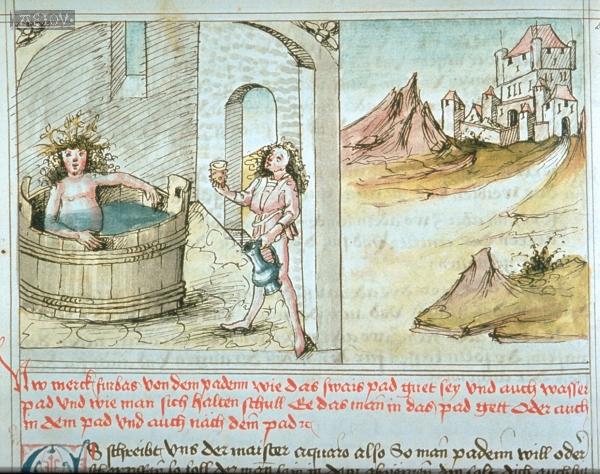 Nw merck furbas von dem padenn wie das swais pad guet sey vnd auch wasser
pad vnd wie man sich halten schull Ee das man in das pad gett Oder auch
in dem pad vnd auch nach dem pad
Es schreibt vns der maister also So man padenn will oder